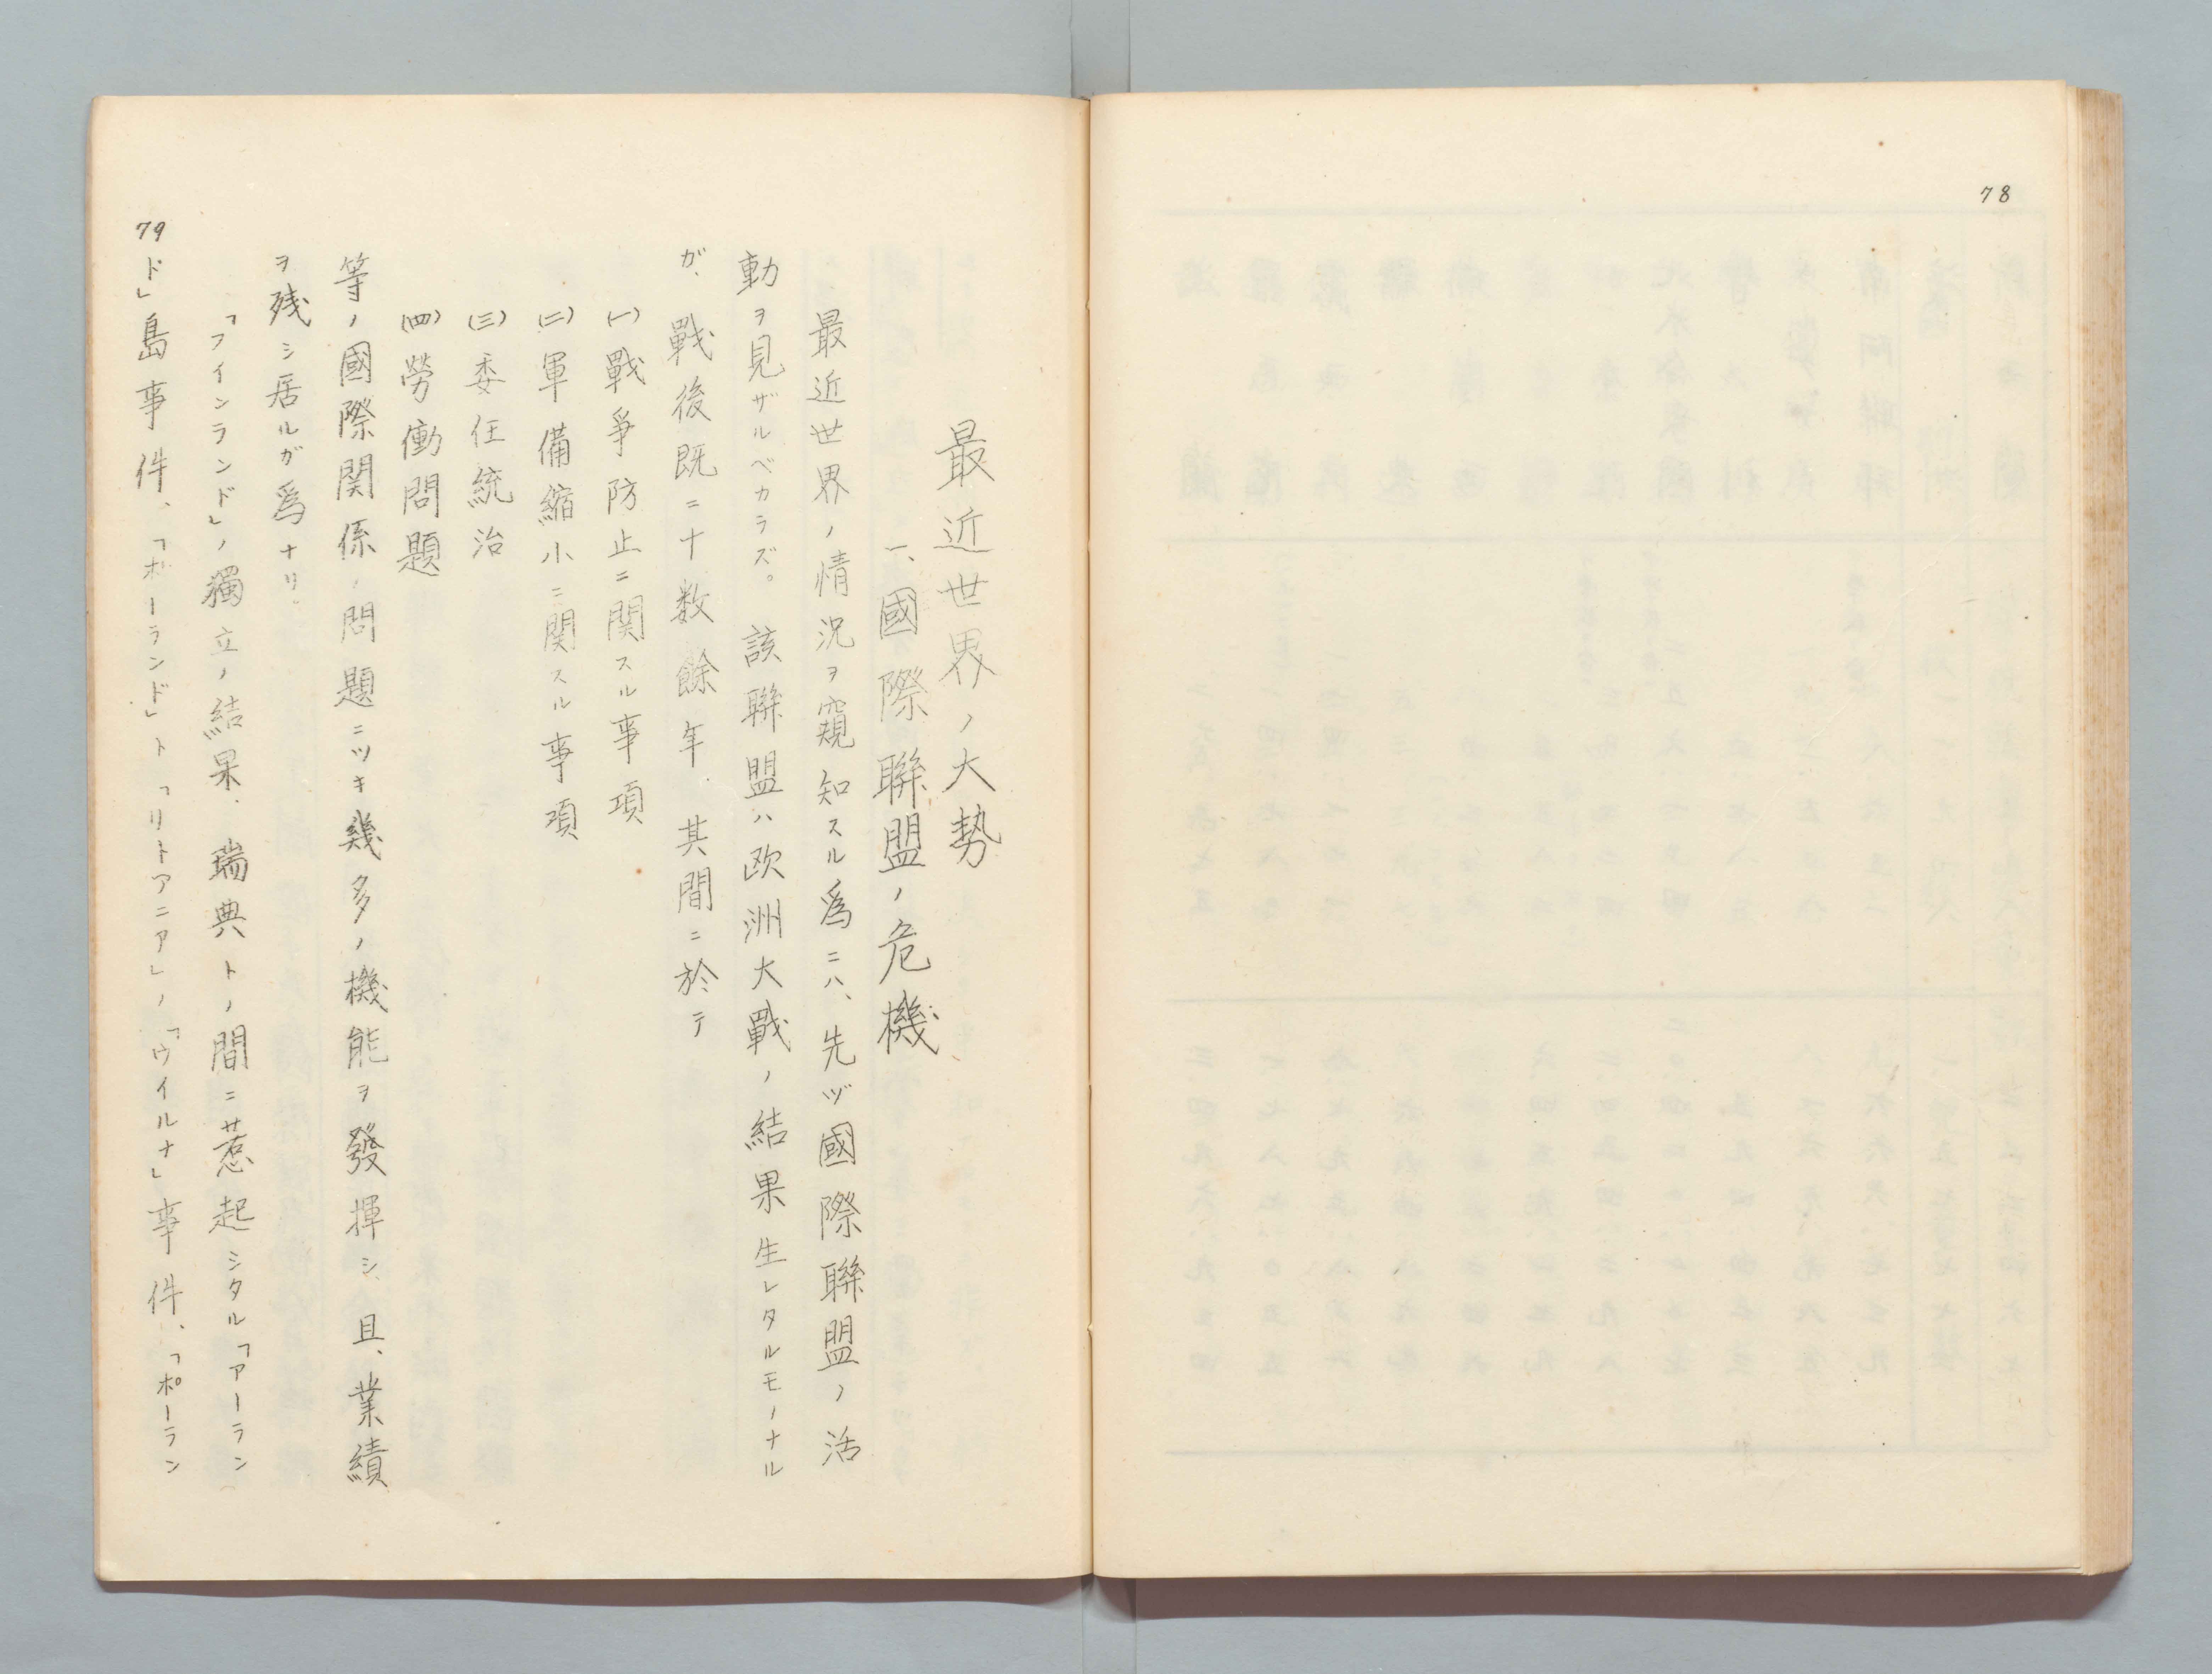 78
最近世界ノ大勢
一、國際聯盟ノ危機
最近世界ノ情況ヲ窺知スル爲ニハ、先ヅ國際聯盟ノ活
動ヲ見ザルベカラズ。該聯盟ハ欧洲大戰ノ結果生レタルモノナル
ガ、戰後既ニ十数餘年、其間ニ於テ
(一)戰爭防止ニ関スル事項
(二)軍備縮小ニ関スル事項
(三)委任統治
(四)勞働問題
等ノ國際関係ノ問題ニツキ幾多ノ機能ヲ發揮シ、且、業績
ヲ残シ居ルガ爲ナリ。
「フインランド」ノ獨立ノ結果、瑞典トノ間ニ惹起シタル「アーラン
ド」島事件、「ポーランド」ト「リトアニア」ノ「ウイルナ」事件、「ポーラン
79